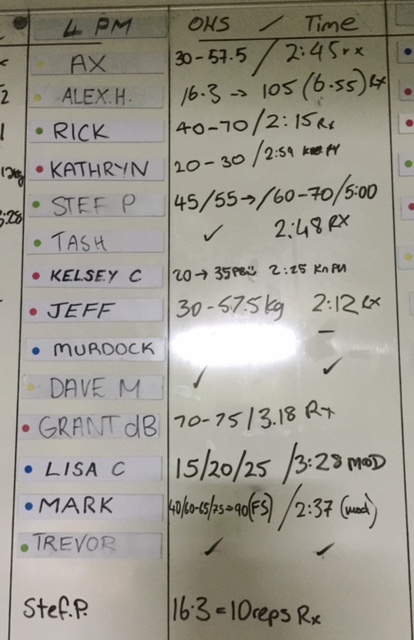 4 PM OHS / Time
AX 30-57.5 / 2:45 rx
ALEX.H. 16.3 → 105 (6.55) Rx
RICK 40-70 / 2:15 Rx
KATHRYN 20-30 / 2:59
STEF P 45/55→/60-70/5:00
TASH ✓ 2:48 RX
KELSEY C 20→35 2:25
JEFF 30-57.5kg 2:12 Rx
MURDOCK –
DAVE M ✓ ✓
GRANT dB 70-75/3.18 Rx
LISA C 15/20/25 /3:28 MOD
MARK 40/60-65/75→90(FS) / 2:37 (mod)
TREVOR ✓ ✓
Stef.P. 16.3 = 10 reps Rx